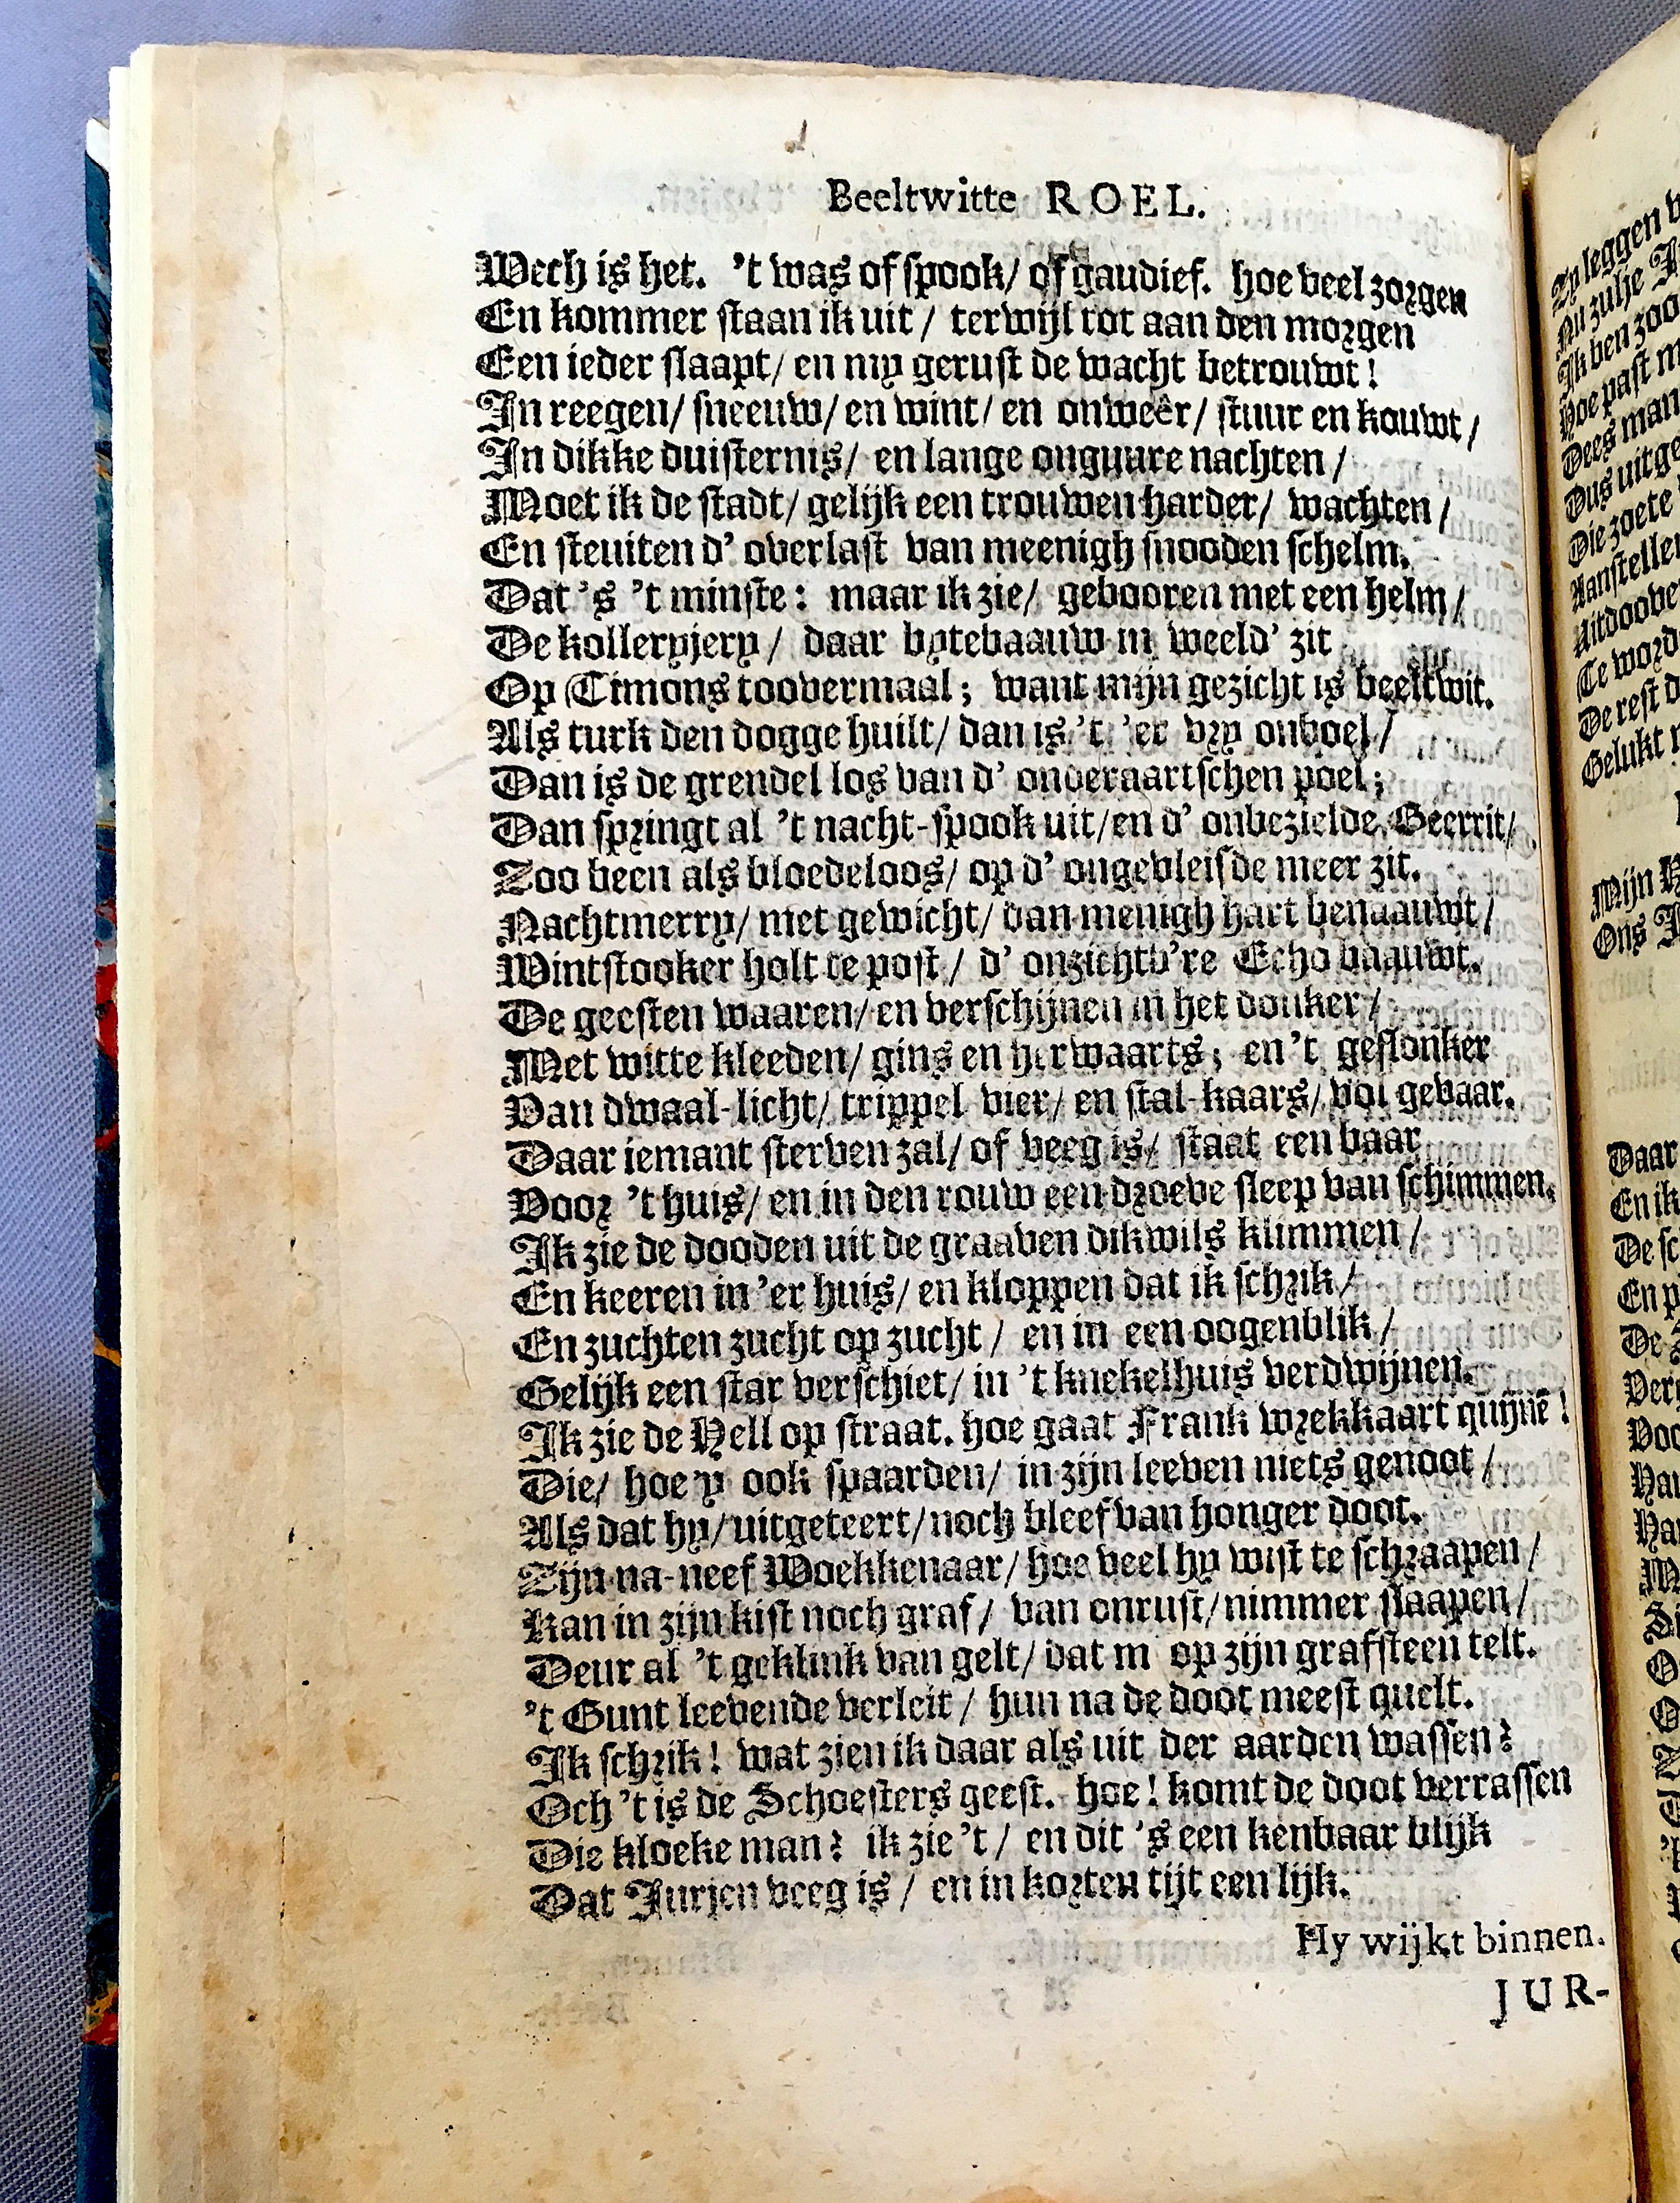 Beeltwitte ROEL.
Wech is het. 't was of spook/ of gaudief. hoe veel zorgen
En kommer staan ik uit/ terwijl tot aan den morgen
Een ieder slaapt/ en my gerust de wacht betrouwt!
In reegen/ sneeuw/ en wint/ en onweêr/ stuur en kouwt/
In dikke duisternis/ en lange onguure nachten/
Moet ik de stadt/ gelijk een trouwen harder/ wachten/
En steuiten d' overlast van meenigh snooden schelm.
Dat 's 't minste: maar ik zie/ gebooren met een helm/
De kolleryjery/ daar bytebaauw in weeld' zit
Op Timons toovermaal; want mijn gezicht is beeltwit.
Als turk den dogge huilt/ dan is 't 'er vry onvoel/
Dan is de grendel los van d' onderaartschen poel;
Dan springt al 't nacht-spook uit/en d' onbezielde Geerrit/
Zoo been als bloedeloos/ op d' ongevleisde meer zit.
Nachtmerry/ met gewicht/ dan menigh hart benaauwt/
Wintstooker holt te post/ d' onzichtb're Echo baauwt.
De geesten waaren/ en verschijnen in het donker/
Met witte kleeden/ gins en herwaarts; en 't geflonker
Van dwaal-licht/ trippel vier/ en stal-kaars/ vol gevaar.
Daar iemant sterven zal/ of veeg is/ staat een baar
Voor 't huis/ en in den rouw een droeve sleep van schimmen.
Ik zie de dooden uit de graaven dikwils klimmen/
En keeren in 'er huis/ en kloppen dat ik schrik/
En zuchten zucht op zucht/ en in een oogenblik/
Gelijk een star verschiet/ in 't knekelhuis verdwijnen.
Ik zie de Hell op straat. hoe gaat Frank wrekkaart quijnē!
Die/ hoe y ook spaarden/ in zijn leeven niets genoot/
Als dat hy/ uitgeteert/ noch bleef van honger doot.
Zijn na-neef Woekkenaar/ hoe veel hy wist te schraapen/
Kan in zijn kist noch graf/ van onrust/ nimmer slaapen/
Deur al 't geklink van gelt/ dat m op zijn grafsteen telt.
't Gunt leevende verleit/ hun na de doot meest quelt.
Ik schrik! wat zien ik daar als uit der aarden wassen?
Och 't is de Schoesters geest. hoe! komt de doot verrassen
Die kloeke man? ik zie 't/ en dit 's een kenbaar blijk
Dat Jurjen veeg is/ en in korten tijt een lijk.
Hy wijkt binnen.
JUR-